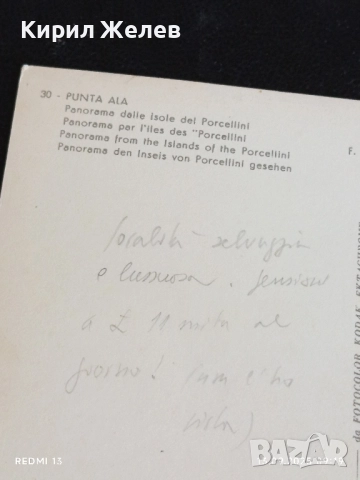 Кирил Желев
30 - PUNTA ALA
Panorama dalle isole dei Porcellini
Panorama par l'îles des "Porcellini
Panorama from the Islands of the Porcellini
Panorama den Inseis von Porcellini gesehen
F.
località selvaggia
e lussuosa. Pensioni
a £ 11 mila al
giorno! (non l'ho
vista)
da FOTOCOLOR KODAK EKTACHROME
REDMI 13
bazar